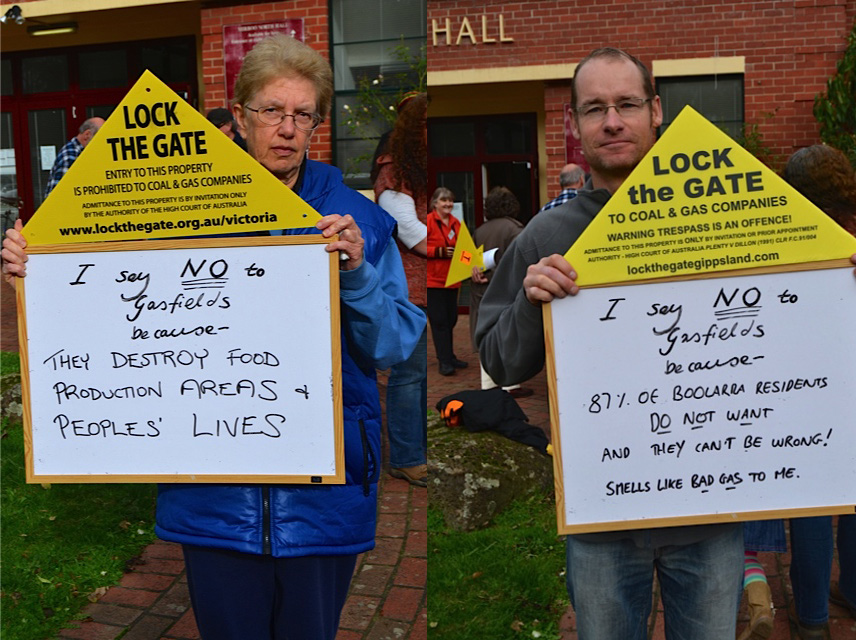 LOCK
THE GATE
ENTRY TO THIS PROPERTY
IS PROHIBITED TO COAL & GAS COMPANIES
ADMITTANCE TO THIS PROPERTY IS BY INVITATION ONLY
BY THE AUTHORITY OF THE HIGH COURT OF AUSTRALIA
www.lockthegate.org.au/victoria
I say NO to
Gasfields
because-
THEY DESTROY FOOD
PRODUCTION AREAS &
PEOPLES' LIVES
HALL
LOCK
the GATE
TO COAL & GAS COMPANIES
WARNING TRESPASS IS AN OFFENCE!
ADMITTANCE TO THIS PROPERTY IS ONLY BY INVITATION OR PRIOR APPOINTMENT
AUTHORITY - HIGH COURT OF AUSTRALIA PLENTY V DILLON (1991) CLR F.C.91/004
lockthegategippsland.com
I say NO to
Gasfields
because-
87% OF BOOLARRA RESIDENTS
DO NOT WANT
AND THEY CAN'T BE WRONG!
SMELLS LIKE BAD GAS TO ME.